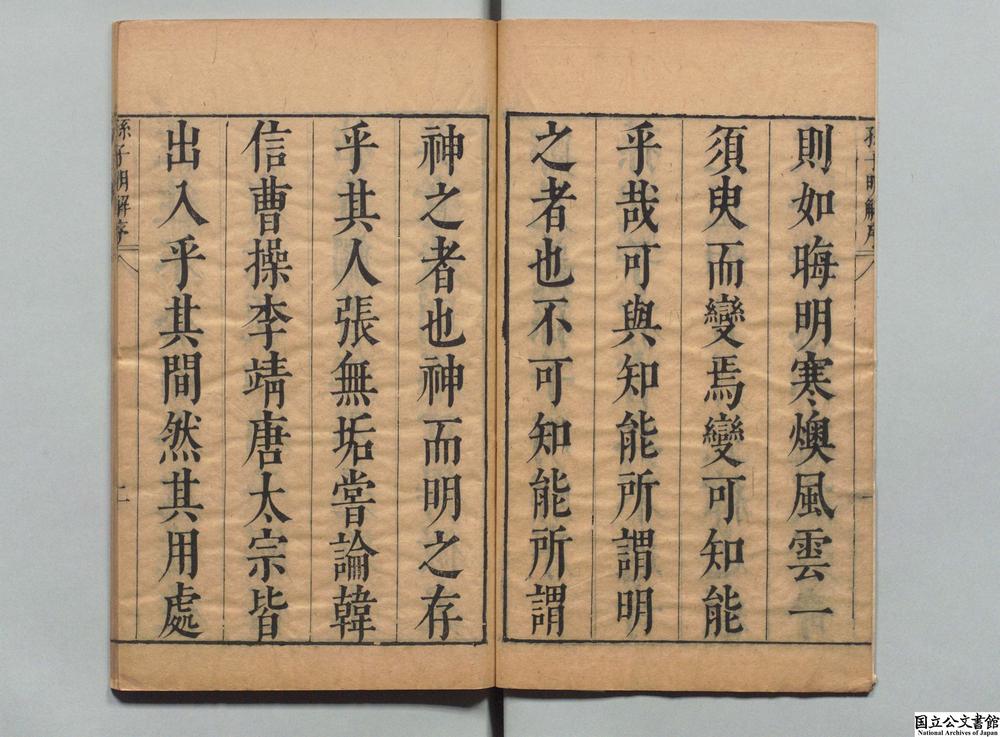 孫子明解序
一
則如晦明寒燠風雲一
須臾而變焉變可知能
乎哉可與知能所謂明
之者也不可知能所謂
神之者也神而明之存
乎其人張無垢嘗論韓
信曹操李靖唐太宗皆
出入乎其間然其用處
孫子明解序
二
国立公文書館
National Archives of Japan